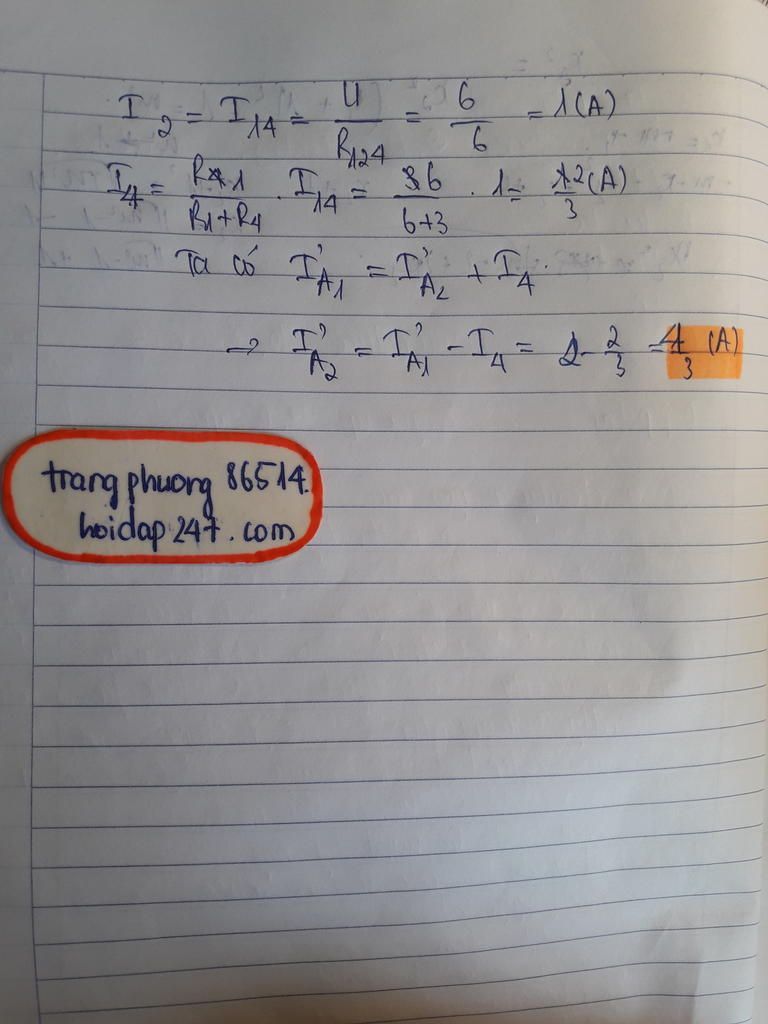 I₂ = I₁₄ = U/R₁₂₄ = 6/6 = 1(A)
I₄ = R₁/(R₁+R₄) . I₁₄ = 6/(6+3) . 1 = 2/3 (A)
Ta có I'A₁ = I'A₂ + I₄.
→ I'A₂ = I'A₁ - I₄ = 2 - 2/3 = 4/3 (A)
trangphuong 86514.
hoidap247.com